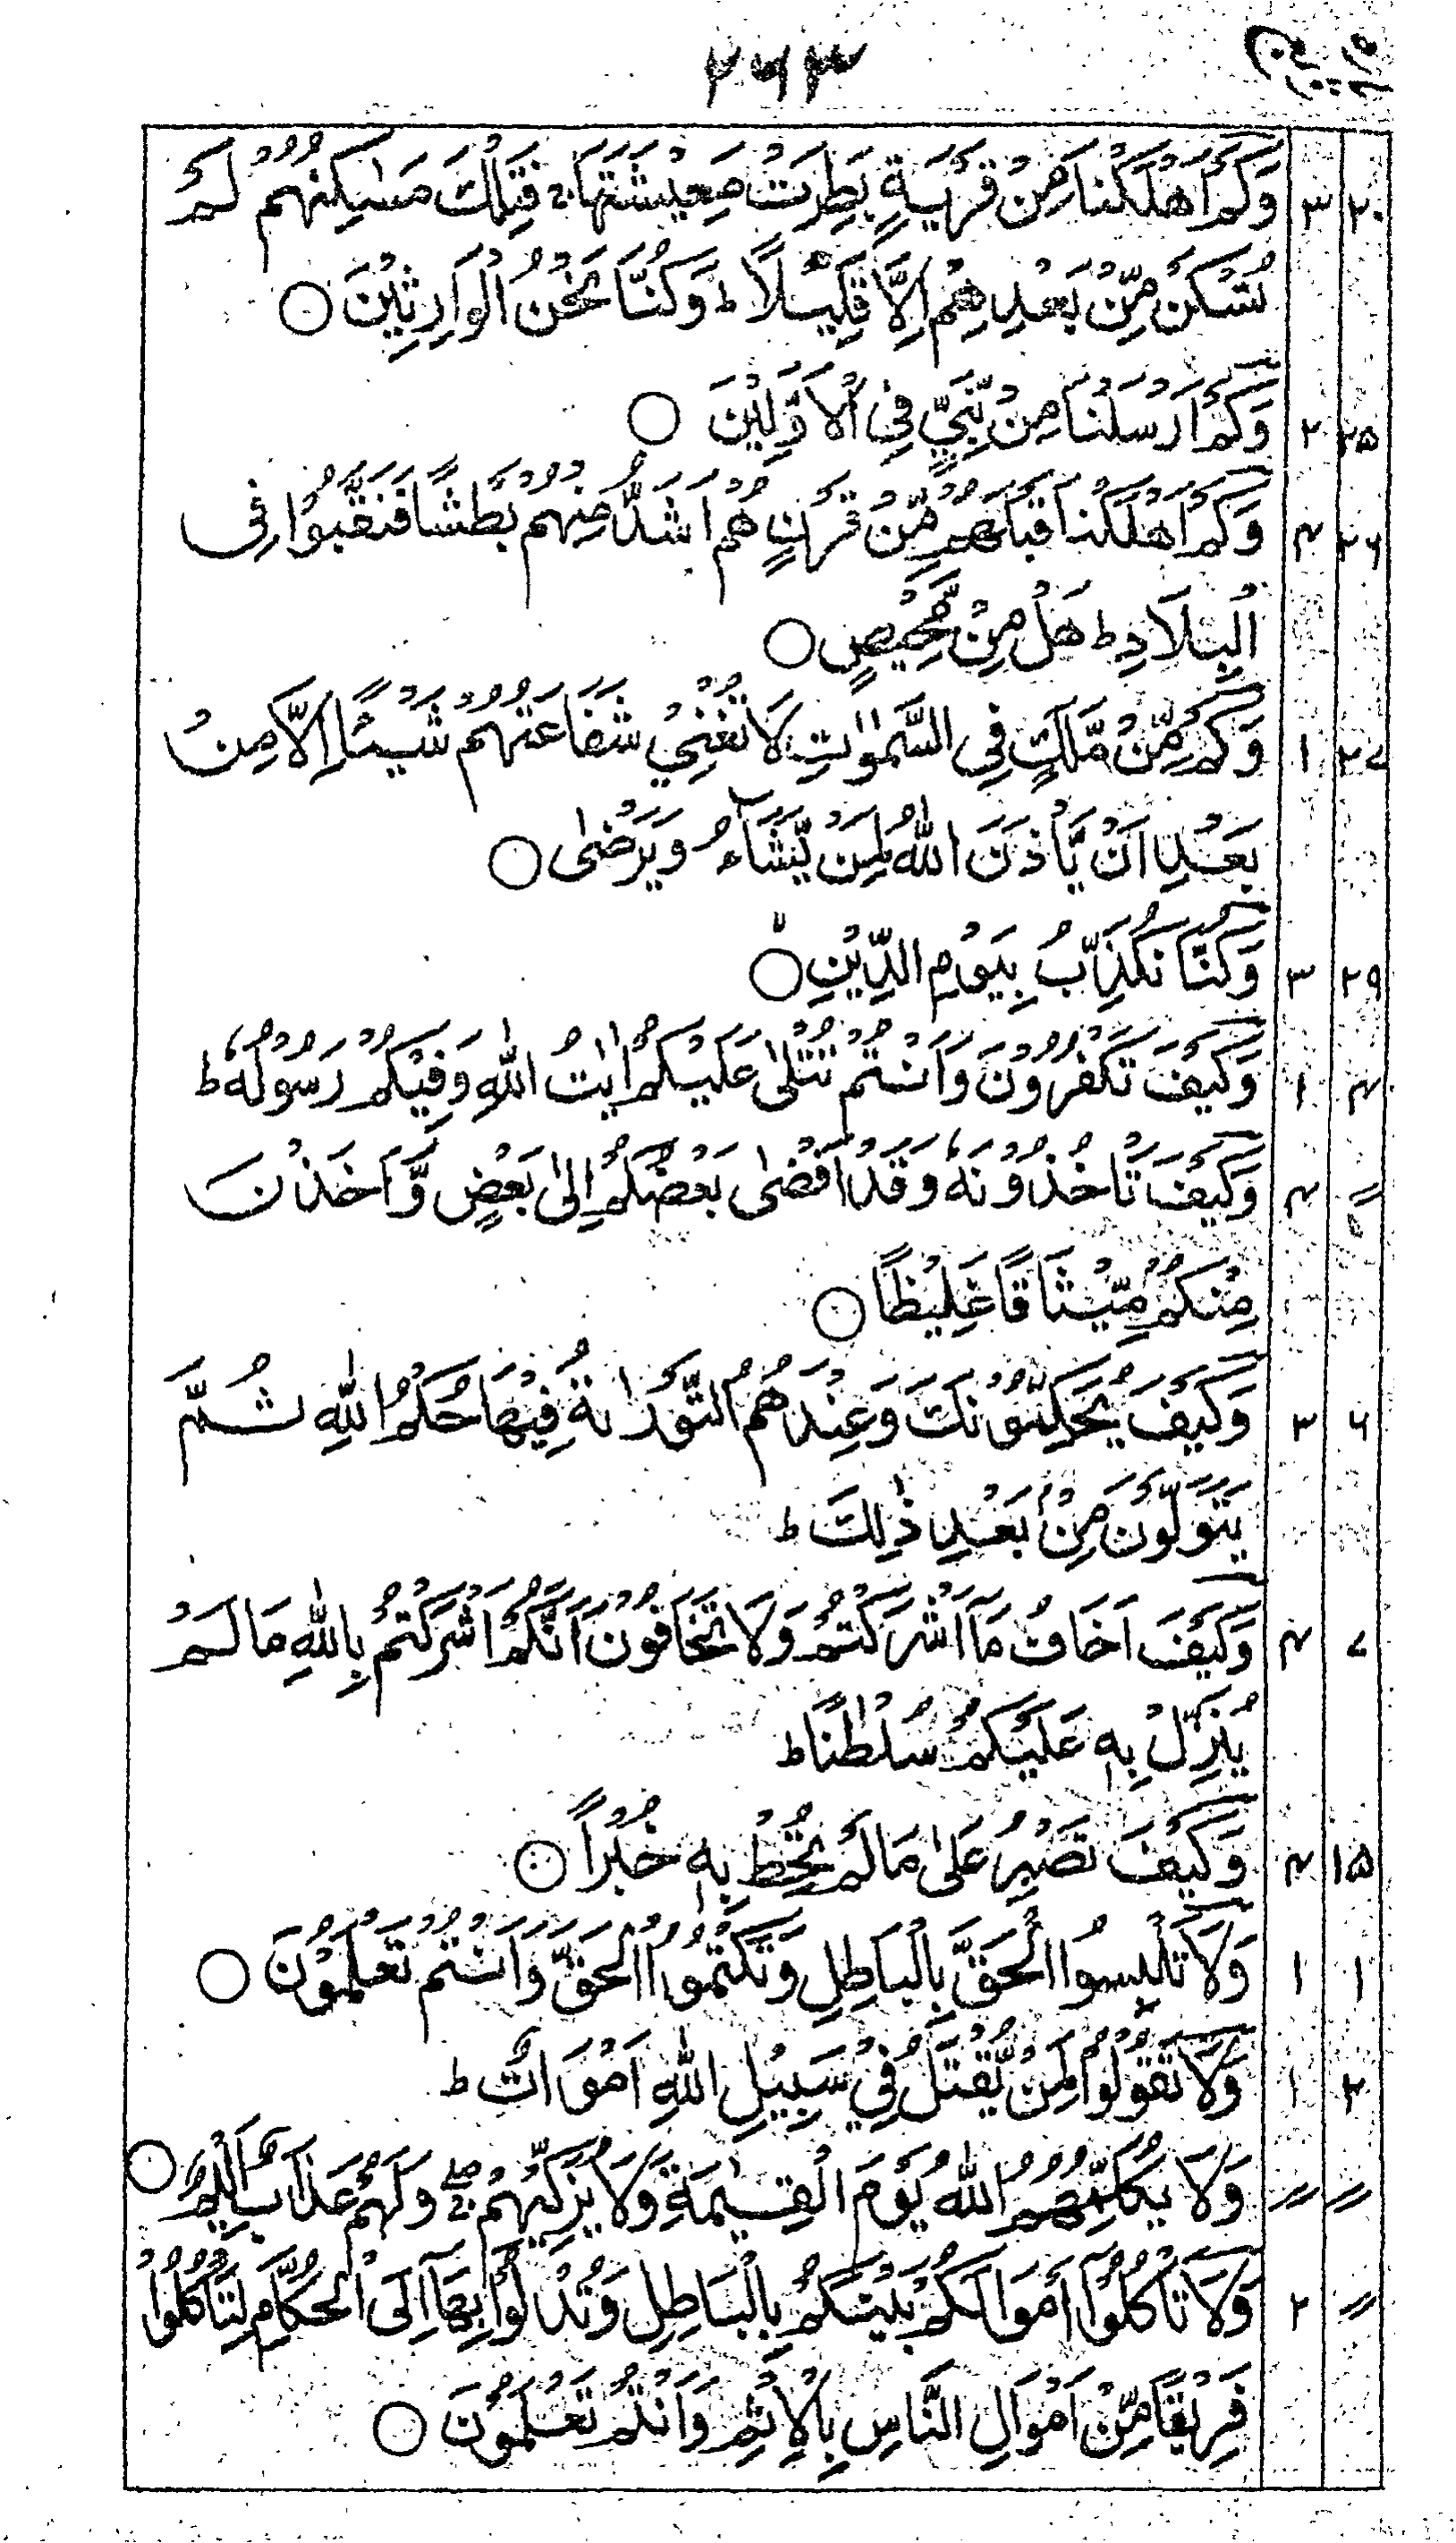 وَكَمْ اَهْلَكْنَا مِنْ قَرْيَةٍ بَطِرَتْ مَعِيْشَتَهَا ۚ فَتِلْكَ مَسٰكِنُهُمْ لَمْ ٣ ٢٠
تُسْكَنْ مِّنْ بَعْدِهِمْ اِلَّا قَلِيْلًا ط وَكُنَّا نَحْنُ الْوَارِثِيْنَ ○
وَكَمْ اَرْسَلْنَا مِنْ نَّبِيٍّ فِى الْاَوَّلِيْنَ ○ ٢ ٢٥
وَكَمْ اَهْلَكْنَا قَبْلَهُمْ مِّنْ قَرْنٍ هُمْ اَشَدُّ مِنْهُمْ بَطْشًا فَنَقَّبُوْا فِى ٤ ٢٦
الْبِلَادِ ط هَلْ مِنْ مَّحِيْصٍ ○
وَكَمْ مِّنْ مَّلَكٍ فِى السَّمٰوٰتِ لَا تُغْنِيْ شَفَاعَتُهُمْ شَيْـًٔا اِلَّا مِنْ ١ ٢٧
بَعْدِ اَنْ يَّاْذَنَ اللّٰهُ لِمَنْ يَّشَآءُ وَيَرْضٰى ○
وَكُنَّا نُكَذِّبُ بِيَوْمِ الدِّيْنِ ○ ٣ ٢٩
وَكَيْفَ تَكْفُرُوْنَ وَاَنْتُمْ تُتْلٰى عَلَيْكُمْ اٰيٰتُ اللّٰهِ وَفِيْكُمْ رَسُوْلُهٗ ط ١ ٤
وَكَيْفَ تَاْخُذُوْنَهٗ وَقَدْ اَفْضٰى بَعْضُكُمْ اِلٰى بَعْضٍ وَّاَخَذْنَ ٤ ״
مِنْكُمْ مِّيْثَاقًا غَلِيْظًا ○
وَكَيْفَ يُحَكِّمُوْنَكَ وَعِنْدَهُمُ التَّوْرٰىةُ فِيْهَا حُكْمُ اللّٰهِ ثُمَّ ٣ ٦
يَتَوَلَّوْنَ مِنْ بَعْدِ ذٰلِكَ ط
وَكَيْفَ اَخَافُ مَآ اَشْرَكْتُمْ وَلَا تَخَافُوْنَ اَنَّكُمْ اَشْرَكْتُمْ بِاللّٰهِ مَا لَمْ ٤ ٧
يُنَزِّلْ بِهٖ عَلَيْكُمْ سُلْطٰنًا ط
وَكَيْفَ تَصْبِرُ عَلٰى مَا لَمْ تُحِطْ بِهٖ خُبْرًا ○ ٤ ١٥
وَلَا تَلْبِسُوا الْحَقَّ بِالْبَاطِلِ وَتَكْتُمُوا الْحَقَّ وَاَنْتُمْ تَعْلَمُوْنَ ○ ١ ١
وَلَا تَقُوْلُوْا لِمَنْ يُّقْتَلُ فِيْ سَبِيْلِ اللّٰهِ اَمْوَاتٌ ط ١ ٢
وَلَا يُكَلِّمُهُمُ اللّٰهُ يَوْمَ الْقِيٰمَةِ وَلَا يُزَكِّيْهِمْ ۖۚ وَلَهُمْ عَذَابٌ اَلِيْمٌ ○ ״ ״
وَلَا تَاْكُلُوْٓا اَمْوَالَكُمْ بَيْنَكُمْ بِالْبَاطِلِ وَتُدْلُوْا بِهَآ اِلَى الْحُكَّامِ لِتَاْكُلُوْا ٢ ״
فَرِيْقًا مِّنْ اَمْوَالِ النَّاسِ بِالْاِثْمِ وَاَنْتُمْ تَعْلَمُوْنَ ○